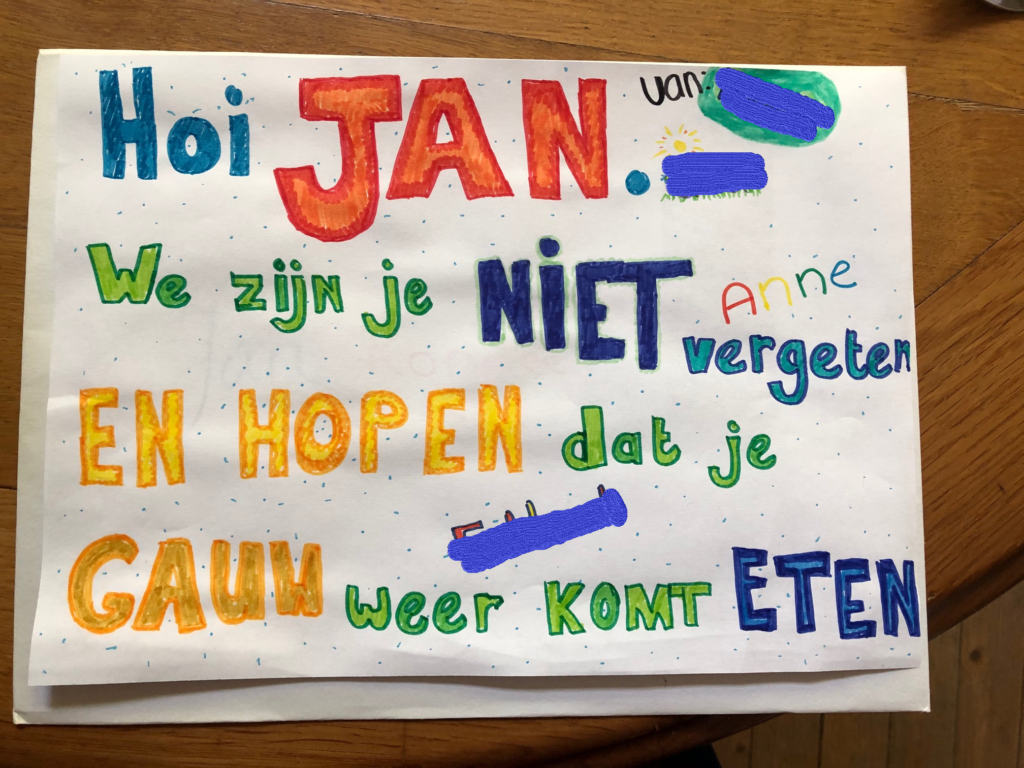 Hoi JAN. van:
We zijn je NIET vergeten
Anne
EN HOPEN dat je
GAUW weer KOMT ETEN